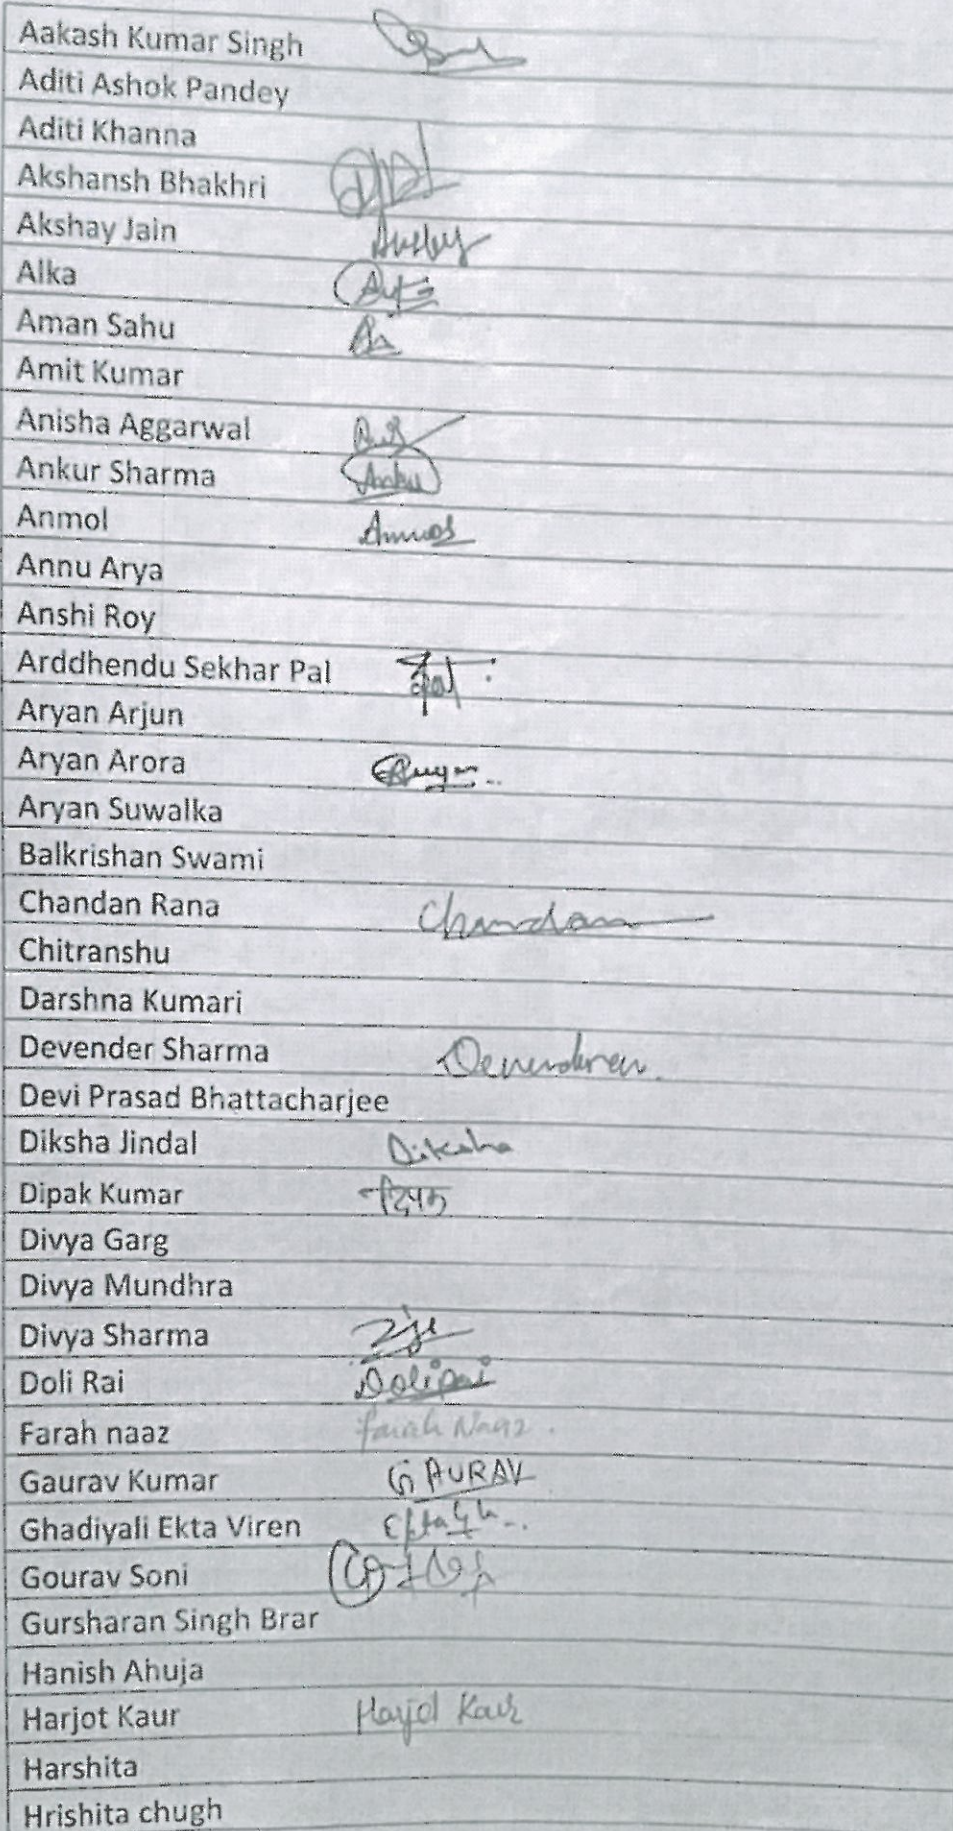 Aakash Kumar Singh
Aditi Ashok Pandey
Aditi Khanna
Akshansh Bhakhri
Akshay Jain
Alka
Aman Sahu
Amit Kumar
Anisha Aggarwal
Ankur Sharma
Anmol
Annu Arya
Anshi Roy
Arddhendu Sekhar Pal
Aryan Arjun
Aryan Arora
Aryan Suwalka
Balkrishan Swami
Chandan Rana Chandan
Chitranshu
Darshna Kumari
Devender Sharma
Devi Prasad Bhattacharjee
Diksha Jindal Diksha
Dipak Kumar दिपक
Divya Garg
Divya Mundhra
Divya Sharma
Doli Rai Doli Rai
Farah naaz Farah Naaz.
Gaurav Kumar GAURAV
Ghadiyali Ekta Viren Ekta
Gourav Soni
Gursharan Singh Brar
Hanish Ahuja
Harjot Kaur Harjot Kaur
Harshita
Hrishita chugh